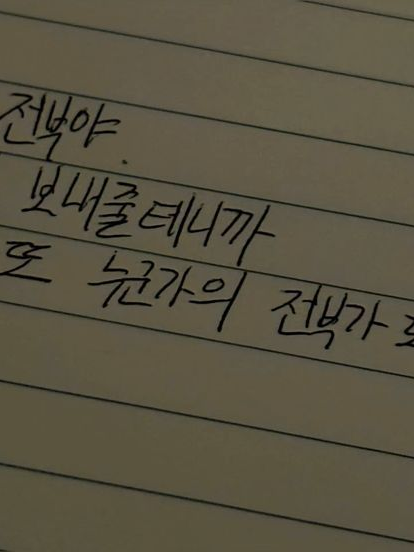 전부야.
보내줄테니까
또 누군가의 전부가